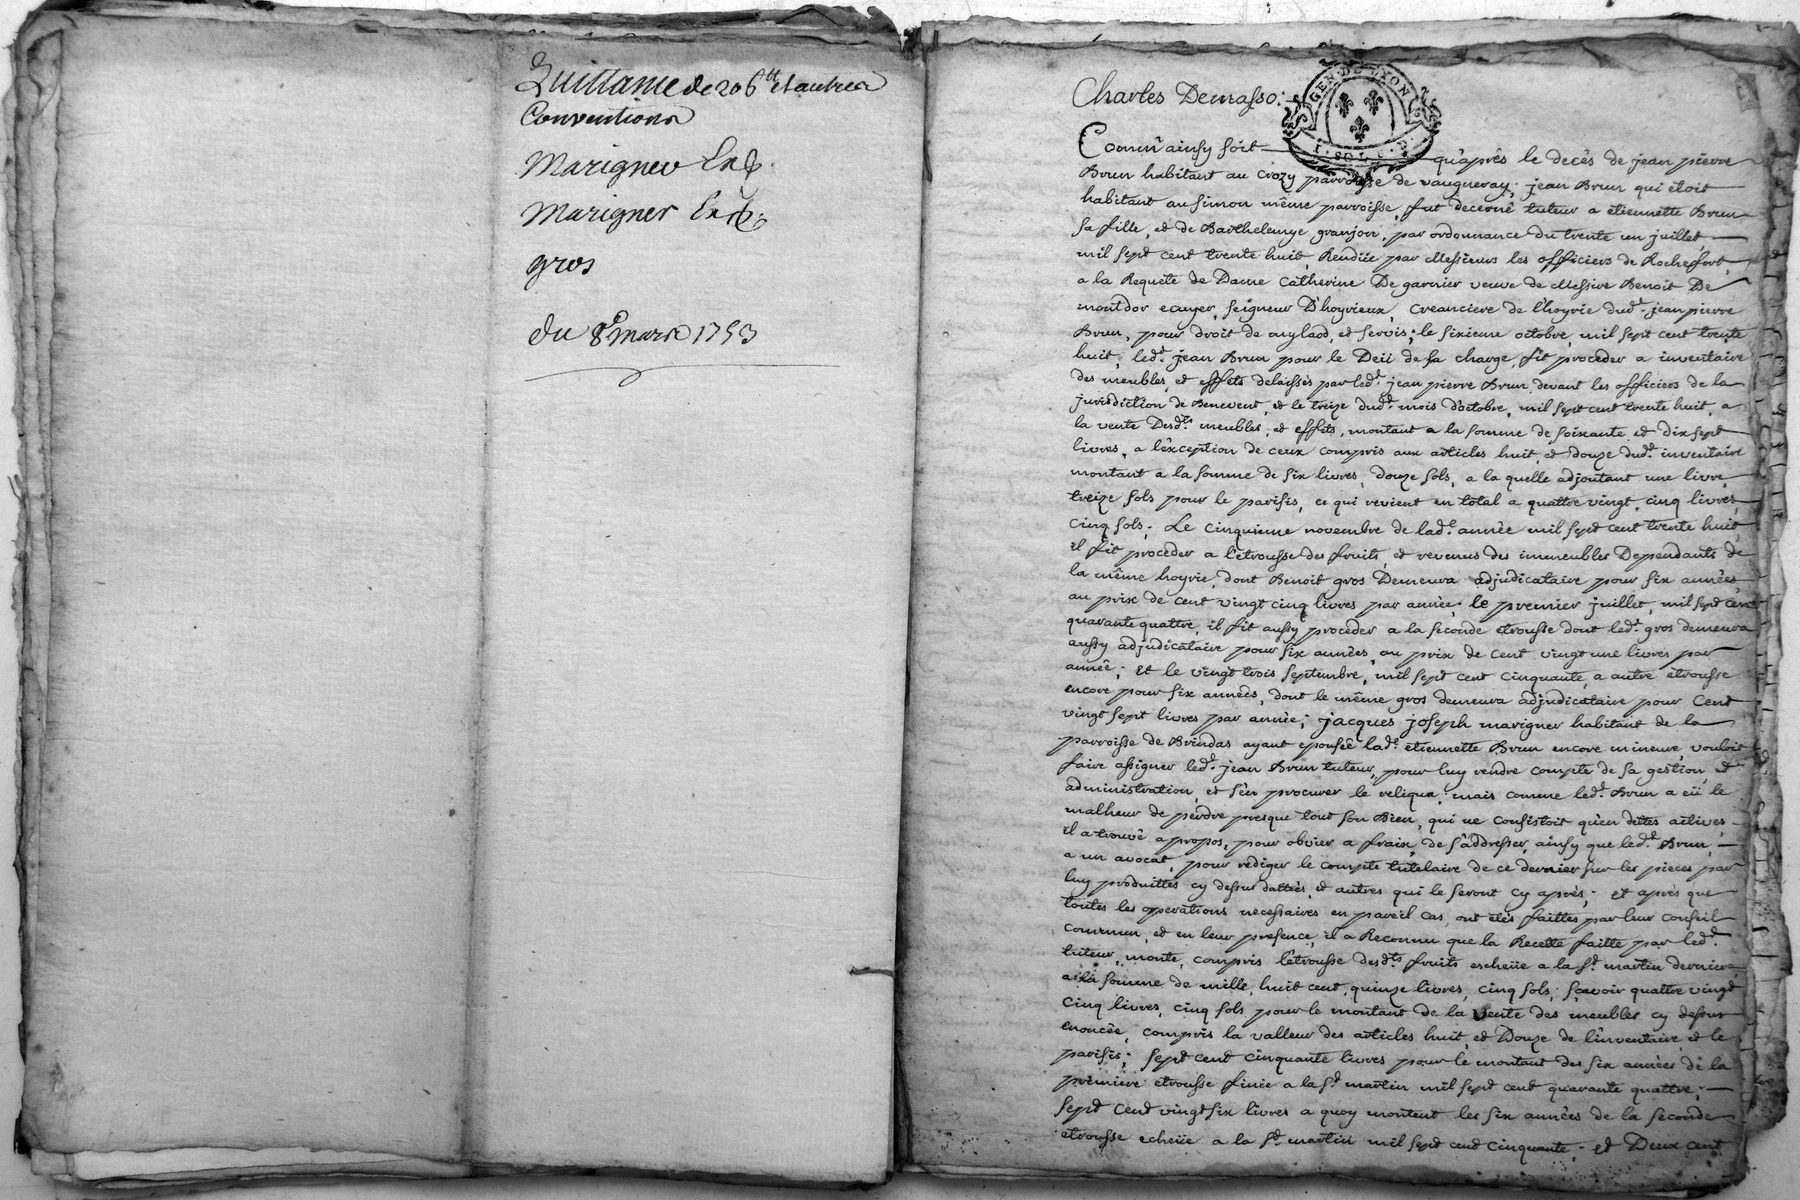 Quittance de 206 tt et autres
Conventions
Marigner Exp.
Marigner Exp.
gros
du 8e mars 1753
Charles Demasso:
GEN. DE LYON
Comm' ainsy soit qu'après le decès de jean pierre
Brun habitant au Crozy parroisse de vaugneray; jean Brun qui étoit
habitant au simon même parroisse, fut decerné tuteur a etiennette Brun
sa fille, et de Barthelemye granjon, par ordonnance du trente un juillet,
mil sept cent trente huit, Rendüe par Messieurs les officiers de Rochefort,
a la Requete de Dame Catherine De garnier veuve de Messire Benoit De
montdor ecuyer, seigneur D'hoyrieux, Creanciere de l'hoyrie dud.t jean pierre
Brun, pour droit de mylaod, et servis; le sixieme octobre, mil sept cent trente
huit, led.t jean Brun pour le Deü de sa charge, fit proceder a inventaire
des meubles, et effets delaissés par led.t jean pierre Brun devant les officiers de la
jurisdiction de Benevent, et le treize dud.t mois d'octobre, mil sept cent trente huit, a
la vente Desd.ts meubles, et effets, montant a la somme de soixante et dix sept
livres, a l'exception de ceux compris aux articles huit, et douze dud.t inventaire
montant a la somme de six livres, douze sols, a la quelle adjoutant une livre,
treize sols pour le parisis, ce qui revient en total a quattre vingt cinq livres,
cinq sols; Le cinquieme novembre de lad.e année mil sept cent trente huit,
il fit proceder a l'etrousse des fruits, et revenus des immeubles Dependants de
la même hoyrie, dont Benoit gros Demeura adjudicataire pour six années,
au prix de cent vingt cinq livres par année; le premier juillet, mil sept cent
quarante quattre, il fit aussy proceder a la seconde etrousse dont led.t gros demeura
aussy adjudicataire pour six années, au prix de cent vingt une livres par
année; Et le vingt trois septembre, mil sept cent cinquante, a autre etrousse
encore pour six années, dont le même gros demeura adjudicataire pour Cent
vingt sept livres par année; jacques joseph marigner habitant de la
parroisse de Brindas ayant epousée lad.e etiennette Brun encore mineure, vouloit
faire assigner led.t jean Brun tuteur, pour luy rendre compte de sa gestion, et
administration, et s'en procurer le reliqua; mais comme led.t Brun a eü le
malheur de perdre presque tout son Bien, qui ne consistoit qu'en dettes actives,
il a trouvé apropos, pour obvier a fraix, de s'addresser, ainsy que led.t Brun,
a un avocat, pour rediger le compte tutelaire de ce dernier sur les pieces par
luy produittes cy dessus dattées, et autres qui le seront cy après; et après que
toutes les operations necessaires en pareil cas, ont étés faittes par leur conseil
commun, et en leur presence, il a Reconnu que la Recette faitte par led.t
tuteur, monte, compris l'etrousse desd.ts fruits escheüe a la St. martin derniere
a la somme de mille, huit cent, quinze livres, cinq sols; sçavoir quattre vingt
cinq livres, cinq sols pour le montant de la vente des meubles cy dessus
enoncée, compris la valleur des articles huit, et Douze de l'inventaire, et le
parisis; sept cent cinquante livres pour le montant des six années de la
premiere etrousse finie a la St. martin mil sept cent quarante quattre;
sept cent vingt six livres a quoy montent les six années de la seconde
etrousse echeüe a la St. martin mil sept cent cinquante; et Deux cent